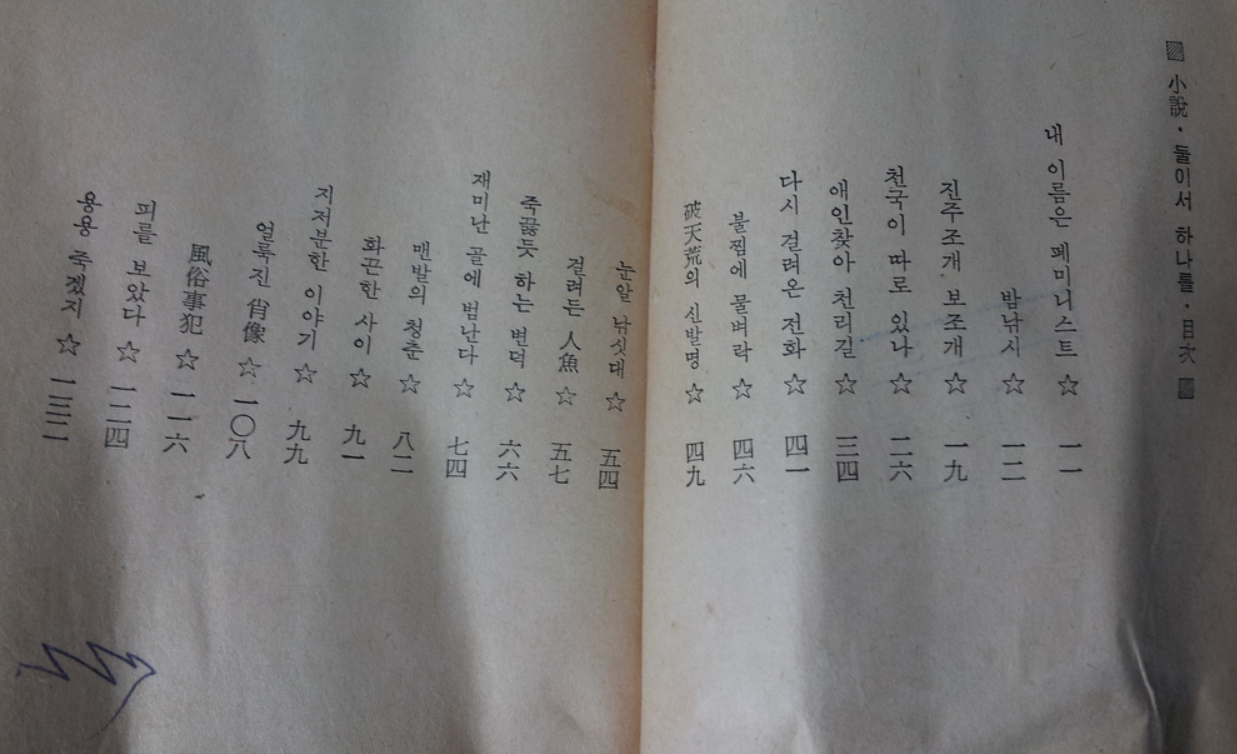 ▨ 小說·둘이서 하나를·目次 ▨
내 이름은 페미니스트 ☆ 一一
밤낚시 ☆ 一二
진주조개 보조개 ☆ 一九
천국이 따로 있나 ☆ 二六
애인찾아 천리길 ☆ 三四
다시 걸려온 전화 ☆ 四一
불찜에 물벼락 ☆ 四六
破天荒의 신발명 ☆ 四九
눈알 낚싯대 ☆ 五四
걸려든 人魚 ☆ 五七
죽끓듯 하는 변덕 ☆ 六六
재미난 골에 범난다 ☆ 七四
맨발의 청춘 ☆ 八二
화끈한 사이 ☆ 九一
지저분한 이야기 ☆ 九九
얼룩진 肖像 ☆ 一〇八
風俗事犯 ☆ 一一六
피를 보았다 ☆ 一二四
용용 죽겠지 ☆ 一三二